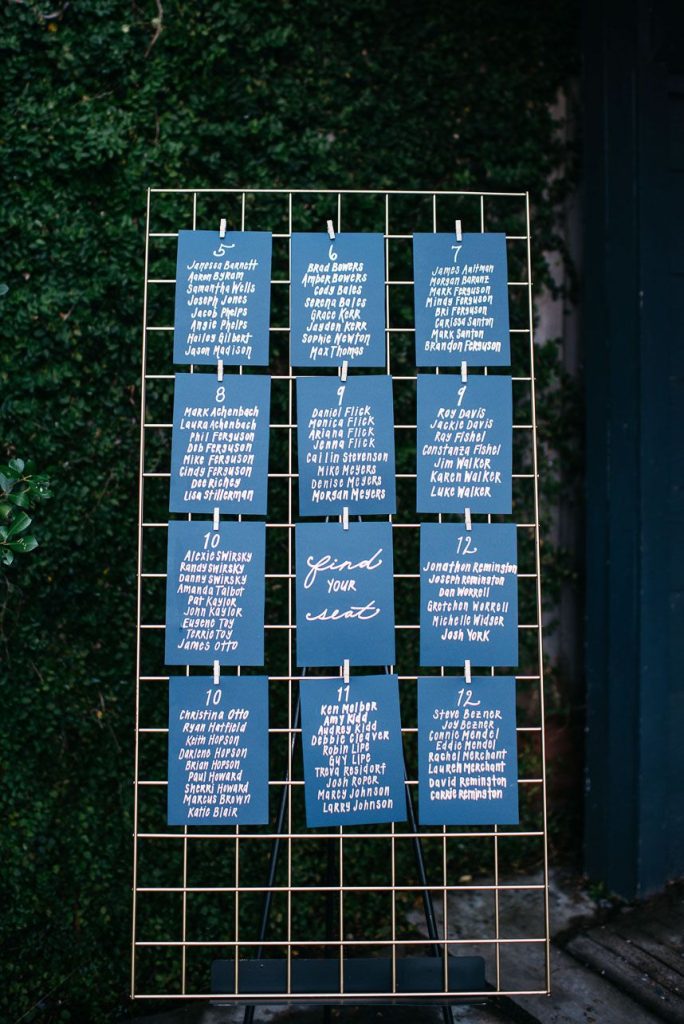 5
Jameson Barnett
Aaron Byram
Samantha Wells
Joseph Jones
Jacob Phelps
Angie Phelps
Hailey Gilbert
Jason Madison
6
Brad Bowers
Amber Bowers
Cody Bales
Serena Bales
Grace Kerr
Jayden Kerr
Sophie Newton
Max Thomas
7
James Aaltman
Morgan Baranz
Mark Ferguson
Mindy Ferguson
Bri Ferguson
Carissa Santon
Mark Santon
Brandon Ferguson
8
Mark Achenbach
Laura Achenbach
Phil Ferguson
Deb Ferguson
Mike Ferguson
Cindy Ferguson
Dee Richey
Lisa Stillerman
9
Daniel Flick
Monica Flick
Ariana Flick
Jenna Flick
Cailin Stevenson
Mike Meyers
Denise Meyers
Morgan Meyers
9
Roy Davis
Jackie Davis
Ray Fishel
Constanza Fishel
Jim Walker
Karen Walker
Luke Walker
10
Alexie Swirsky
Randy Swirsky
Danny Swirsky
Amanda Talbot
Pat Kaylor
John Kaylor
Eugene Toy
Terrie Toy
James Otto
find
your
seat
12
Jonathon Remington
Joseph Remington
Dan Worrell
Gretchen Worrell
Michelle Widger
Josh York
10
Christina Otto
Ryan Hatfield
Keith Hopson
Darlene Hopson
Brian Hopson
Paul Howard
Sherri Howard
Marcus Brown
Katie Blair
11
Ken Melber
Amy Kidd
Audrey Kidd
Debbie Cleaver
Robin Lipe
Guy Lipe
Treva Residorf
Josh Roper
Marcy Johnson
Larry Johnson
12
Steve Bezner
Joy Bezner
Connie Mendel
Eddie Mendel
Rachel Merchant
Lauren Merchant
David Remington
Carrie Remington